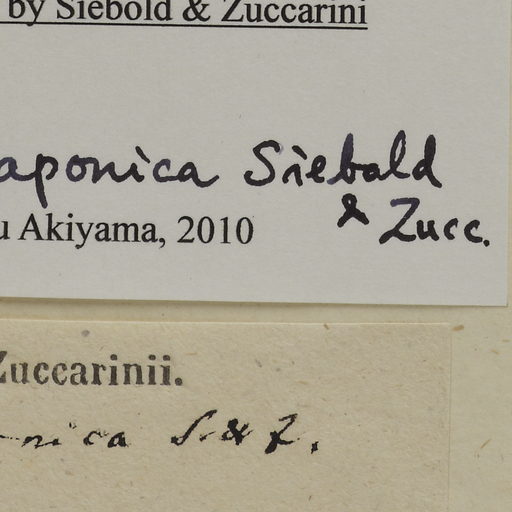 by Siebold & Zuccarini
aponica Siebold
& Zucc.
u Akiyama, 2010
Zuccarinii.
nica S. & Z.